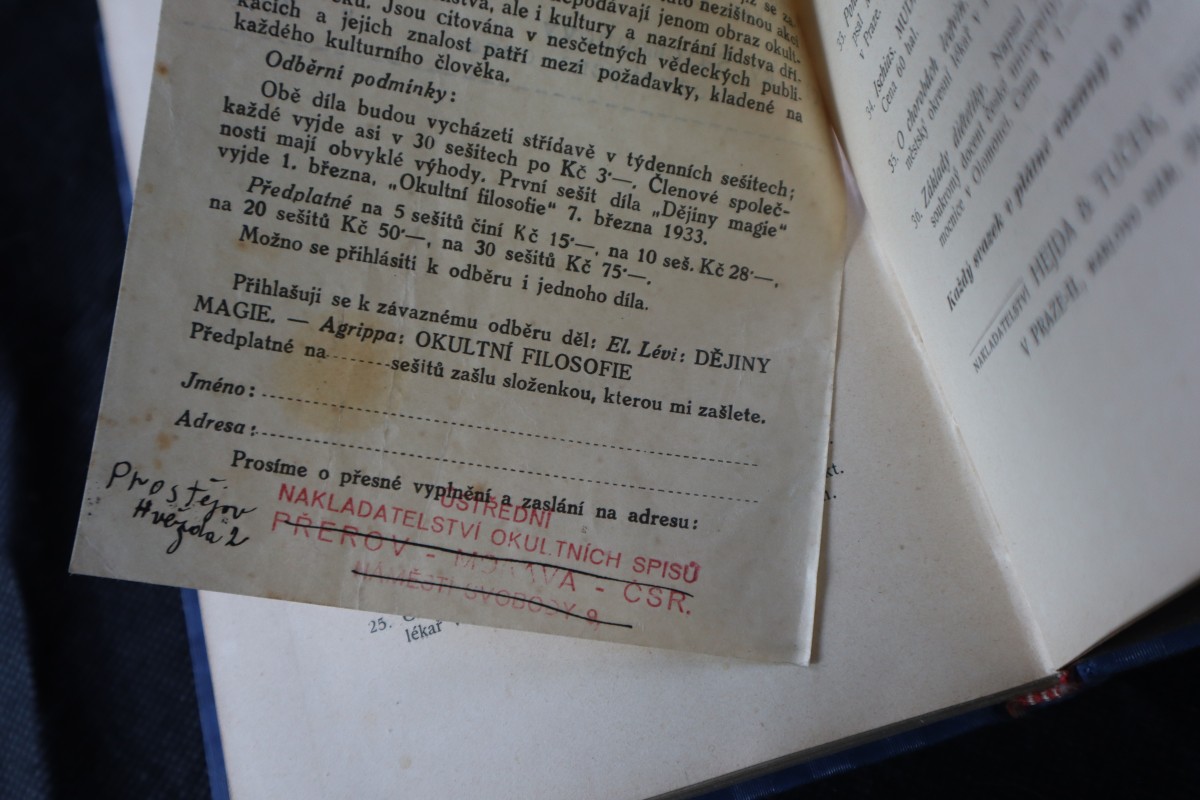 nezištnou akci
ale i kultury a nazírání lidstva
Jsou citována v nesčetných vědeckých publi-
kacích a jejich znalost patří mezi požadavky, kladené na
každého kulturního člověka.
Odběrní podmínky:
Obě díla budou vycházeti střídavě v týdenních sešitech;
každé vyjde asi v 30 sešitech po Kč 3·—. Členové společ-
nosti mají obvyklé výhody. První sešit díla „Dějiny magie“
vyjde 1. března, „Okultní filosofie“ 7. března 1933.
Předplatné na 5 sešitů činí Kč 15·—, na 10 seš. Kč 28·—,
na 20 sešitů Kč 50·—, na 30 sešitů Kč 75·—.
Možno se přihlásiti k odběru i jednoho díla.
Přihlašuji se k závaznému odběru děl: El. Lévi: DĚJINY
MAGIE. — Agrippa: OKULTNÍ FILOSOFIE
Předplatné na........sešitů zašlu složenkou, kterou mi zašlete.
Jméno:
Adresa:
Prosíme o přesné vyplnění a zaslání na adresu:
ÚSTŘEDNÍ
NAKLADATELSTVÍ OKULTNÍCH SPISŮ
PŘEROV - MORAVA - ČSR.
NÁMĚSTÍ SVOBODY 8
Prostějov
Hvězda 2
25.
lékař
33.
v Praze.
34. Ischias. MUDr
Cena 60 hal.
35. O chorobách
městský okresní lékař v
36. Základy dietetiky. Napsal
soukromý docent české university
mocnice v Olomouci. Cena K 1
Každý svazek v plátně vázaný o
NAKLADATELSTVÍ HEJDA & TUČEK,
V PRAZE-II,